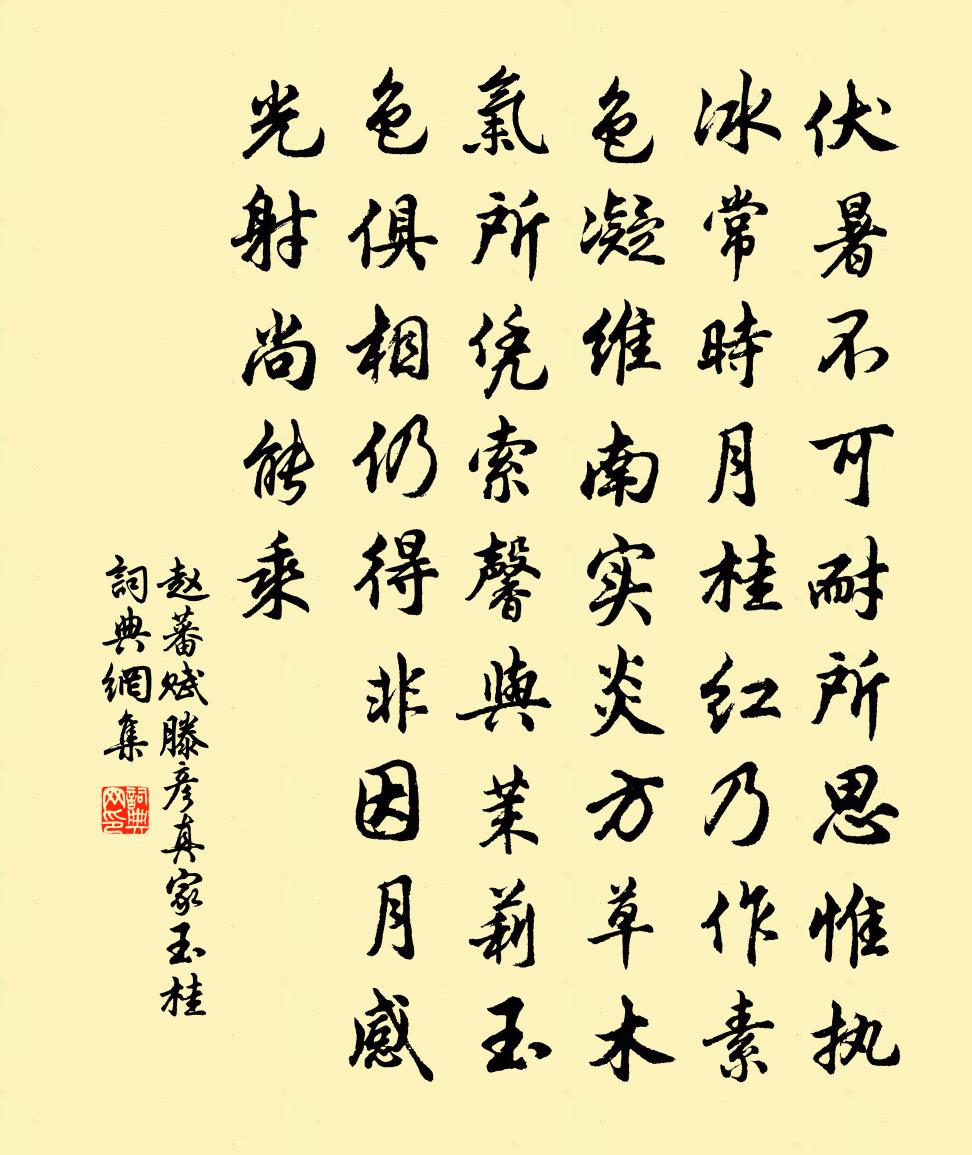 伏暑不可耐所思惟执
冰常時月桂红乃作素
色凝维南实炎方草木
氣所凭索馨與茉莉玉
色俱相仍得非因月感
光射尚能乘
赵蕃赋滕彦真家玉桂
詞典網集
詞典网印